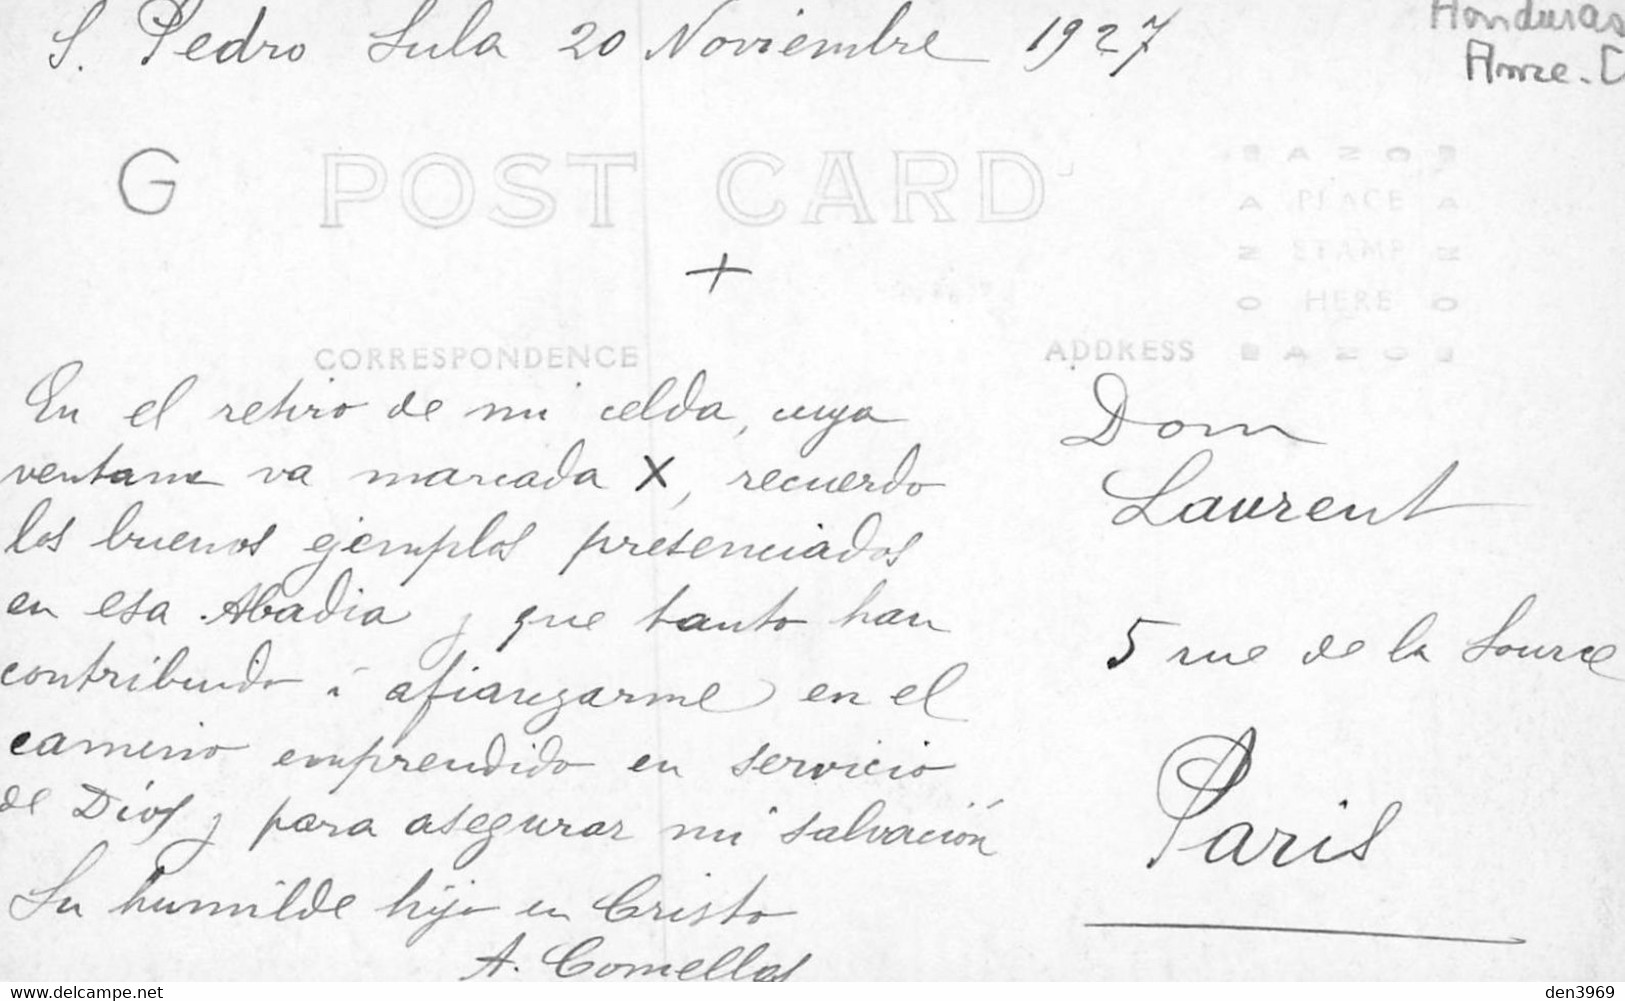 S. Pedro Sula 20 Noviembre 1927
Honduras
Ame. C
G POST CARD
AZO
PLACE
STAMP
HERE
+
CORRESPONDENCE
ADDRESS
En el retiro de mi celda, cuya
ventana va marcada X, recuerdo
los buenos ejemplos presenciados
en esa Abadia y que tanto han
contribuido á afianzarme en el
camino emprendido en servicio
de Dios y para asegurar mi salvación
Su humilde hijo en Cristo
A. Comellas
Dom
Laurent
5 rue de la Source
Paris
www.delcampe.net
den3969